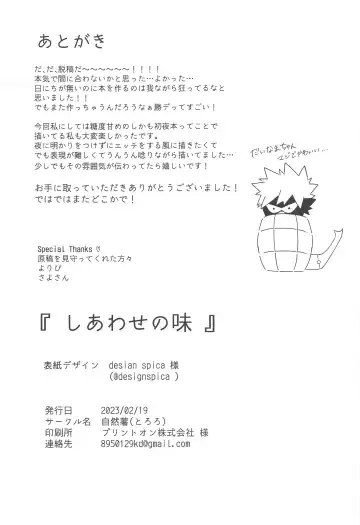 あとがき
だ、だ、脱稿だ〜〜〜〜〜〜！！！！
本気で間に合わないかと思った…よかった…
日にちが無いのに本を作るのは我ながら狂ってるなと
思いました！！
でもまた作っちゃうんだろうなぁ勝デってすごい！
今回私にしては糖度甘めのしかも初夜本ってことで
描いてる私も大変楽しかったです。
夜に明かりをつけずにエッチをする風に描きたくて
でも表現が難しくてうんうん唸りながら描いてました…
少しでもその雰囲気が伝わってたら嬉しいです！
お手に取っていただきありがとうございました！
ではではまたどこかで！
だいなまちゃん
マジでやわい…
Special Thanks ♡
原稿を見守ってくれた方々
よりぴ
さよさん
『 しあわせの味 』
表紙デザイン　desian spica 様
(@designspica )
発行日　2023/02/19
サークル名　自然薯(とろろ)
印刷所　プリントオン株式会社 様
連絡先　8950129kd@gmail.com